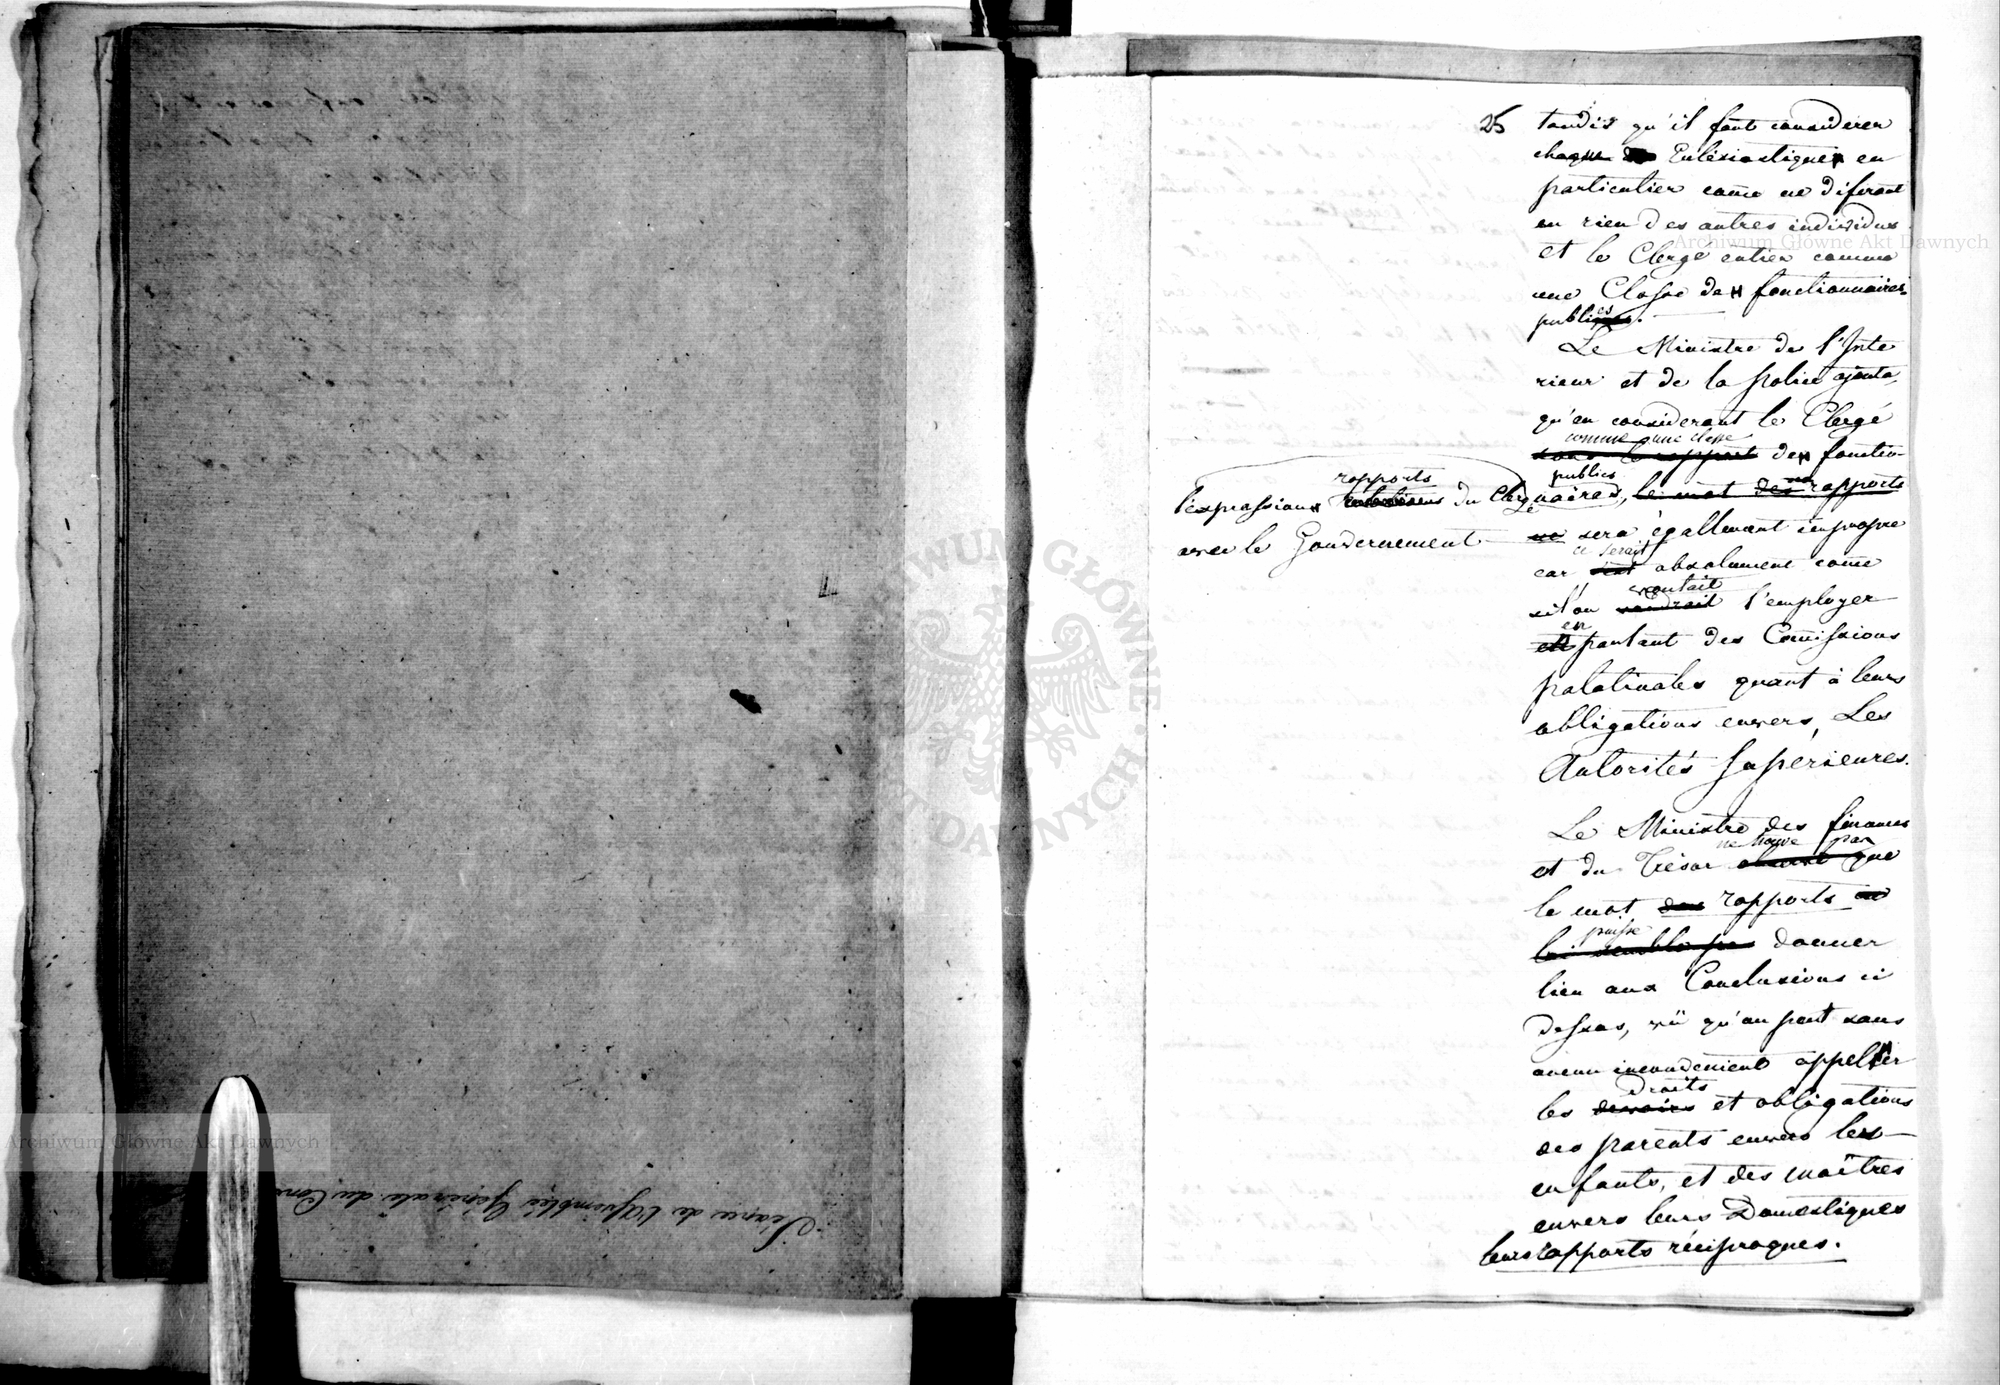 Séance de l'Assemblée Générale du Cons
25
tandis qu'il faut considerer
chaque Eclésiastique en
particulier come ne diferant
en rien des autres individus
et le Clergé entier comme
une Classe de fonctionnaires
publics.
Le Ministre de l'Inte
rieur et de la police ajouta,
qu'en considerant le Clergé
comme une classe
sous le rapport de fonction-
publics
naires, le mot des rapports
rapports
l'expression relations du Clergé
avec le Gouvernement
ne sera égallement impropre
ce serait
car c'est absolument come
voulait
si l'on voudrait l'employer
en
parlant des Comissions
palatinales quant à leurs
obligations envers, Les
Autorités Supérieures.
Le Ministre des finances
ne trouve pas
et du Trésor observe que
le mot des rapports ne
puisse
lui semble pas donner
lieu aux Conclusions ci
dessus, vü qu'on peut sans
aucun inconvenient appeller
droits
les devoirs et obligations
des parents envers les
enfants, et des maîtres
envers leurs Domestiques
leurs rapports réciproques.
Archiwum Główne Akt Dawnych
Archiwum Główne Akt Dawnych
ARCHIWUM GŁÓWNE AKT DAWNYCH